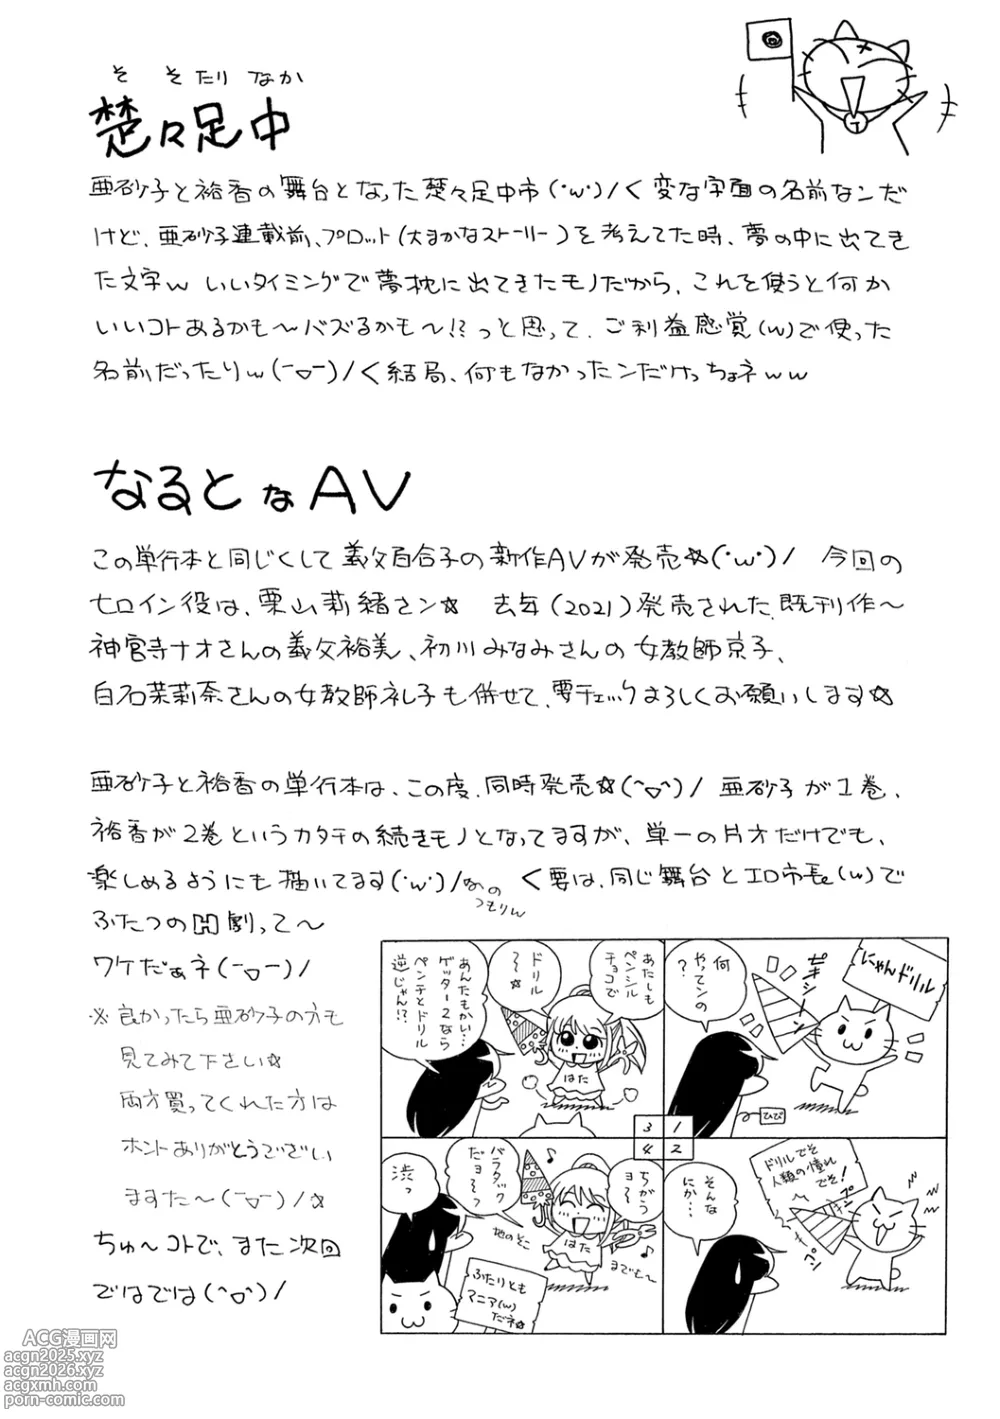 そ そ たり なか
楚々足中
亜砂子と裕香の舞台となった楚々足中市(・ω・)/く変な字面の名前なンだ
けど、亜砂子連載前、プロット(大まかなストーリー)を考えてた時、夢の中に出てき
た文字w いいタイミングで夢枕に出てきたモノだから、これを使うと何か
いいコトあるかも〜バズるかも〜!?っと思って、ご利益感覚(w)で使った
名前だったりw(ーoー)/く結局、何もなかったンだけっちょネww
なるとなAV
この単行本と同じくして義父百合子の新作AVが発売☆(・ω・)/ 今回の
ヒロイン役は、栗山莉緒さン☆ 去年(2021)発売された、既刊作〜
神宮寺ナオさんの義父裕美、初川みなみさんの女教師京子、
白石茉莉奈さんの女教師礼子も併せて、要チェックよろしくお願いします☆
亜砂子と裕香の単行本は、この度、同時発売☆(^o^)/ 亜砂子が1巻、
裕香が2巻というカタチの続きモノとなってますが、単一の片方だけでも、
楽しめるようにも描いてます(・ω・)/なの
つもりw
く要は、同じ舞台とエロ市長(w)で
ふたつのH劇って〜
ワケだぁネ(ーoー)/
※良かったら亜砂子の方も
見てみて下さい☆
両方買ってくれた方は
ホントありがとうでござい
ますた〜(ーoー)/☆
ちゅ〜コトで、また次回
ではでは(^o^)/
にゃんドリル
ギャシーン
何
やってンの
?
ひび
1
ドリルでそ
人類の憧れ
でそ!
そんな
にか…
2
あたしも
ペンシル
チョコで
ドリル
〜☆
あんたもかい…
ゲッター2なら
ペンチとドリル
逆じゃん!?
はた
3
ちがう
ヨ〜ぅ
バラタック
だヨ〜っ
地のそこ
までも〜
はた
渋っ
ふたりとも
マニア(w)
だネ☆
4
ACG漫画网
acgn2025.xyz
acgn2026.xyz
acgxmh.com
porn-comic.com